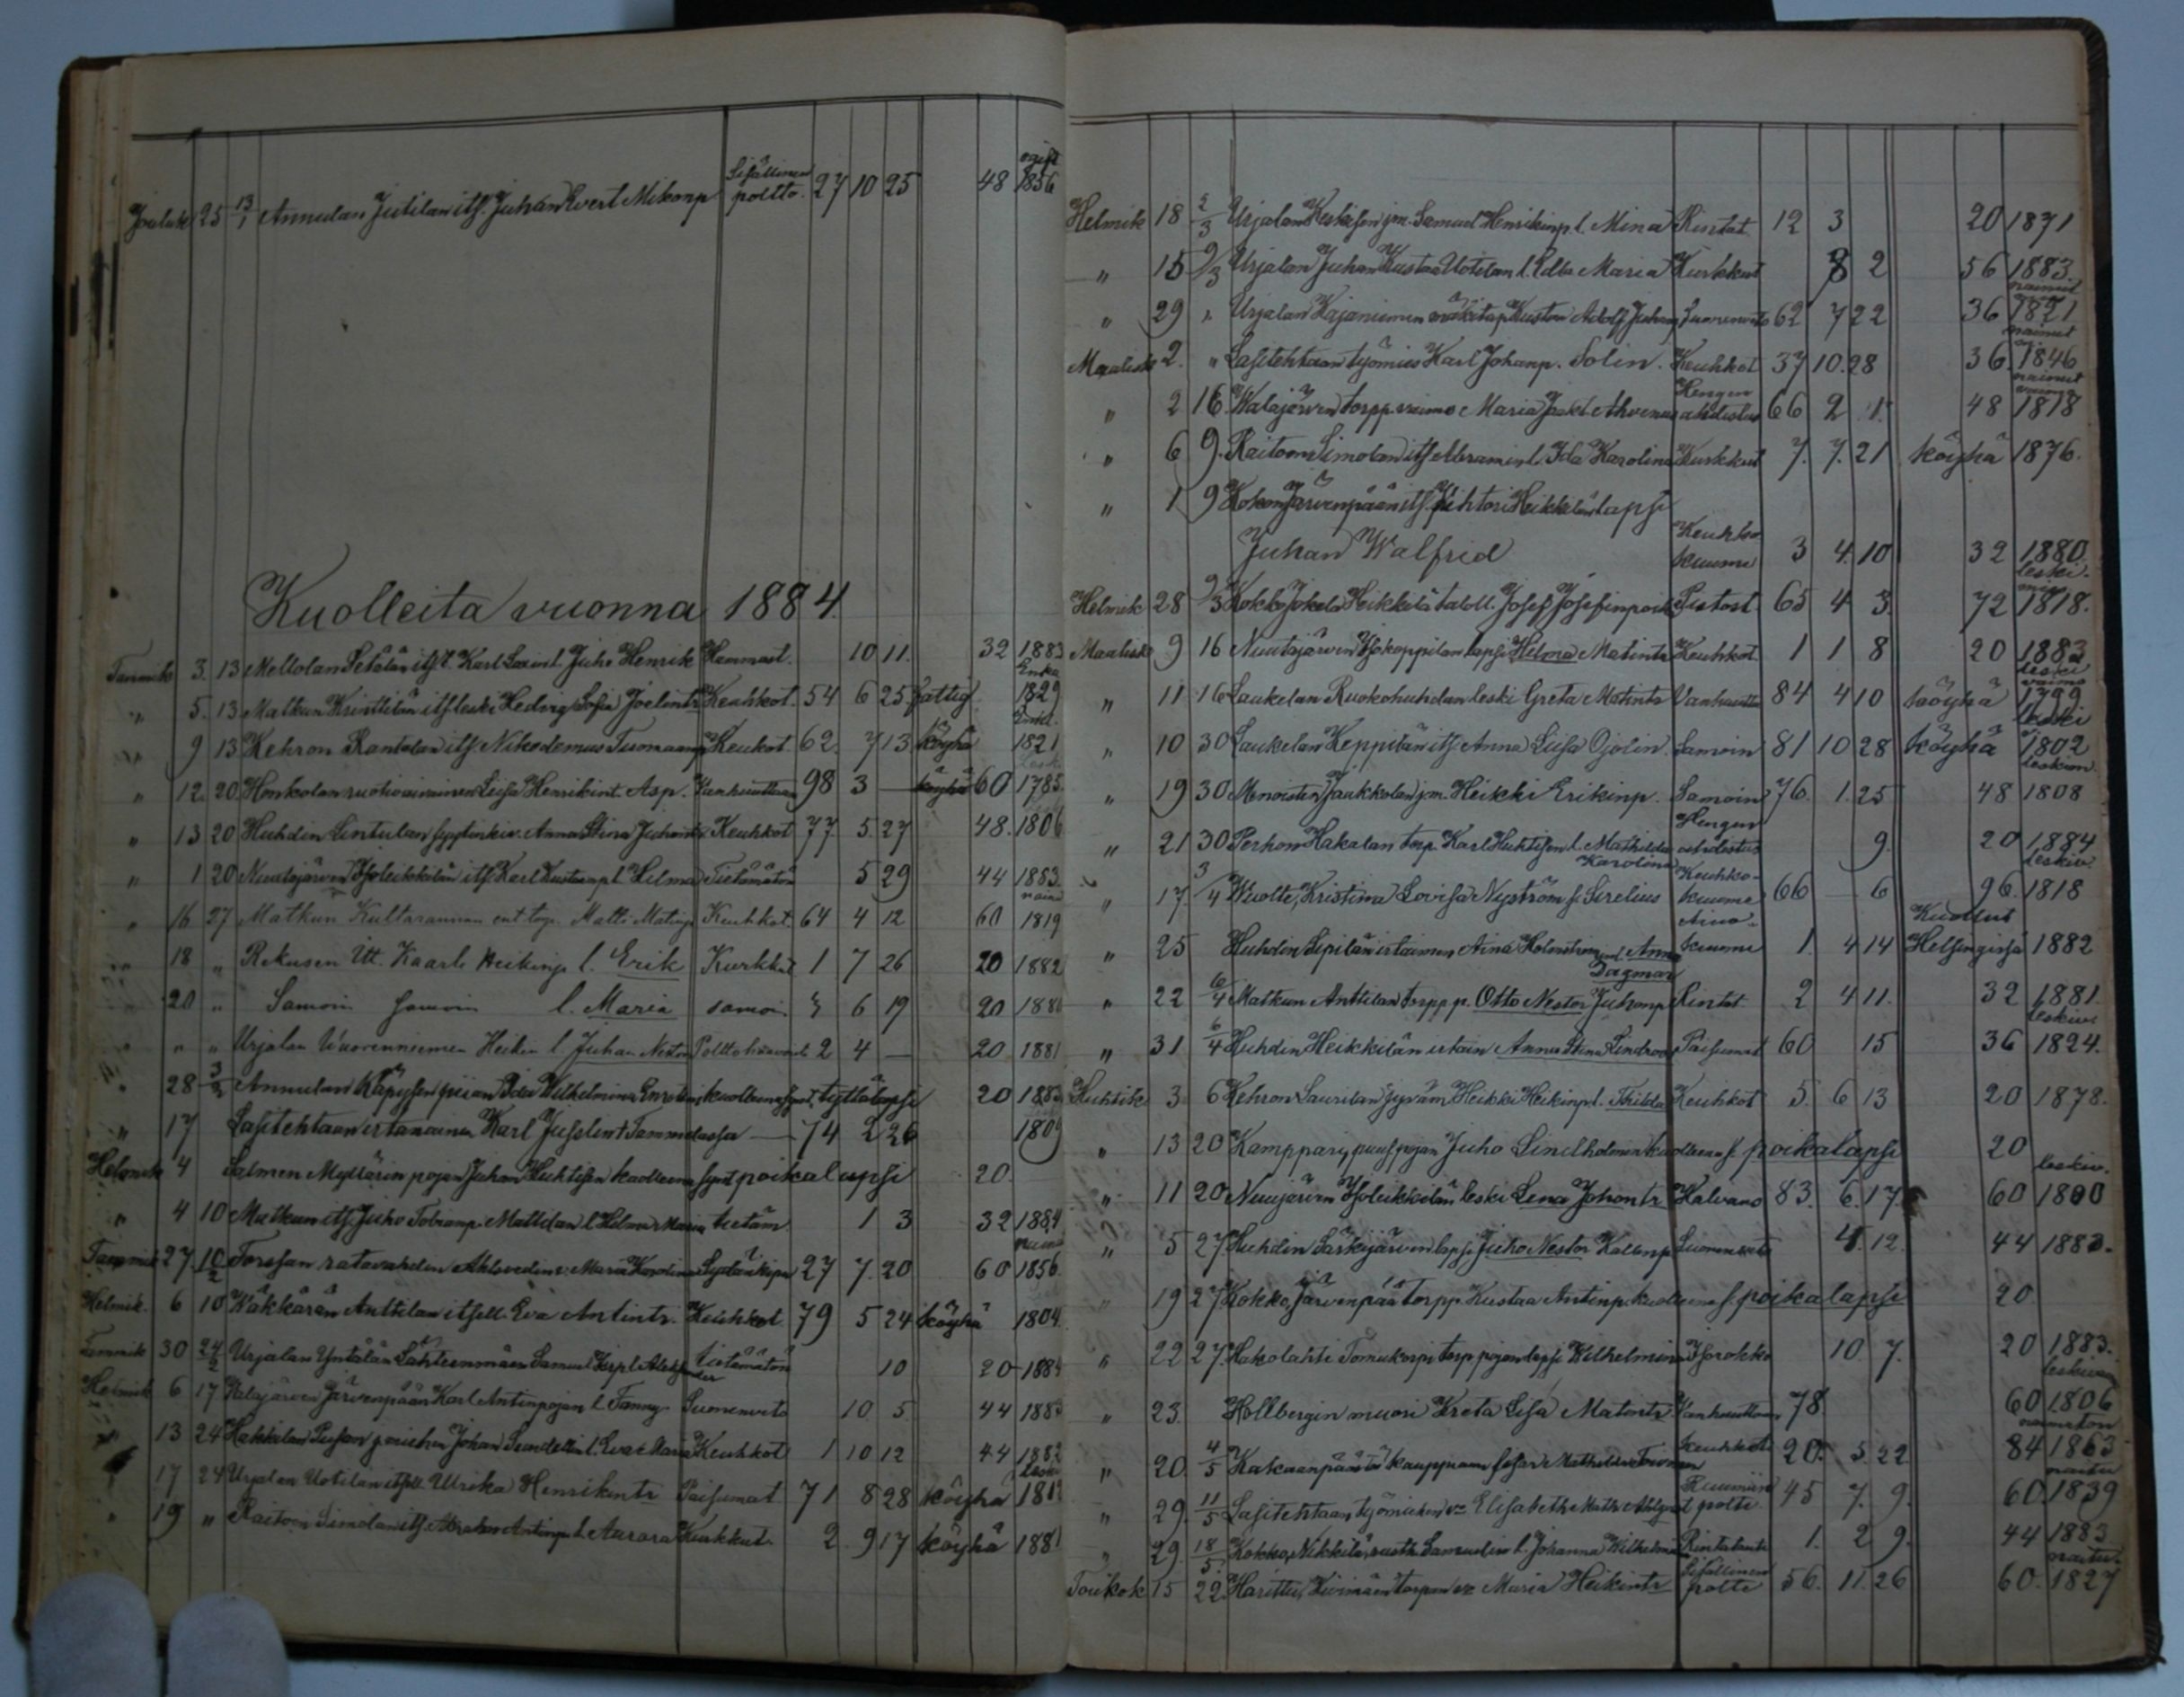 Jouluk 25 13/1 Annulan Jutilan its. Juhan Evert Mikonp Sisällinen poltto. 27 10 25 48 1856
Kuolleita vuonna 1884.
Tammik 3. 13 Mellolan Setälän its. Karl l. Juho Henrik Hammast. 10 11. 32 1883
" 5. 13 Matkun Kinttilän its leski Hedvig Sofia Joelintr Keuhkot. 54 6 25 fattig 1829
" 9 13 Kehron Rantalan its. Nikodemus Tuomaanp Keukot. 62. 7 13 köyhä 1821
" 12. 20 Honkolan Liisa Henrikint. Asp. Vanhuuttaan 98 3 — köyhä 60 1785.
" 13 20 Huhdin Lintulan Anna Stina Juhantr Keuhkot 77. 5. 27 48. 1806
" 1 20 Nuutajärven Isoleikkilän its. Karl Kustaanp l. Hilma Tietämätön 5 29 44 1883
" 16 27 Matkun Kultarannan ent. torp. Matti Matinp Keuhkot. 64 4 12 60 1819
" 18 " Rekusen Itt. Kaarle Heikinp l. Erik Kurkkut 1 7 26 20 1882
" 20 " Samoin samoin l. Maria samoin 3 6 19 20 1880
" " " Urjalan Wuorenniemen Heiken l. Juhan Nestor Polttohaavat 2 4 — 20 1881
" 28 3/2 Annulan Käpysen piian Ida Wilhelmina kuolleena synt. tyttölapsi 20 1883
" 17 Lasitehtaan Karl Jusslin + Tammelassa — 74 2 26 1809
Helmik 4 Salmen Myllärin pojan Juhan Huhtisen kuolleena synt poikalapsi 20.
" 4 10 Matkun its Juho Tobianp Mattilan l. Helma Maria tietäm 1 3 32 1884
Tammik 27 10/2 Forssan ratavahdin Ahlstedin v. Maria Karolina Sydänkipu 27 7. 20 60 1856
Helmik. 6 10 Käkkärän Anttilan itsell. Eva Antintr. Keuhkot 79 5 24 köyhä 1804.
Tammik 30 24/2 Urjalan Yntälän Lähteenmäen Samuel tietämätön 10 20 1884
Helmik 6 17 Walajärven Järvenpään Karl Antinpojan l. Fanny Suonenveto 10 5 44 1883
" 13 24 Hakkilan Johan Sundellin l. Eva Maria Keuhkot 1 10 12 44 1882
" 17 24 Urjalan Uotilan itsell Ulrika Henrikintr Paisumat 71 8 28 köyhä 1812
" 19 " Raitoon Simolan its. Abraham Antinp l. Aurora Kurkkut. 2. 9 17 köyhä 1881
Helmik 18 2/3 Urjalan Samuel Henrikinp. l. Mina Rintat 12 3 20 1871
" 15 9/3 Urjalan Juhan Kustaa Uotilan l. Edla Maria Kurkkut 8 2 56 1883.
" 29 " Urjalan Kajaniemen Kustaa Adolf Juhanp Suonenveto 62 7 22 36 1821
Maalisk 2. " Lasitehtaan työmies Karl Johanp. Solin. Keuhkot 37 10. 28 36. 1846
" 2 16. Walajärven torpp. vaimo Maria Jaakt. Ahvenus Hengen ahdistus 66 2 1. 48 1818
" 6 9. Raitoon Simolan its Abramin l. Ida Karolina Kurkkut 7. 7. 21 köyhä 1876.
" 1 9 Kokon Järvenpään its. Vihtori Heikkilän lapsi
Juhan Walfrid Keuhko kuume 3 4. 10 32 1880.
Helmik 28 9/3 Kokko Jokela Heikkilä taloll. Josef Josefinpoika Pistost 65 4 3. 72 1818.
Maalisk 9 16 Nuutajärven Isokoppilan lapsi Helma Matintr Keuhkot 1 1 8 20 1883
" 11 16 Laukelan Ruokohuhdan leski Greta Matintr Vanhuutta 84 4 10 köyhä 1799
" 10 30 Laukelan Keppilän its Anna Liisa Ojolin. Samoin 81 10 28 köyhä 1802
" 19 30 Menoisten Jaakkolan jm. Heikki Erikinp. Samoin 76. 1. 25 48 1808
" 21 30 Perhon Hakalan torp. Karl Huhtisen l. Mathilda Karolina Hengen ahdistus 9. 20 1884
" 17. 3/4 Wuolte, Kristina Lovisa Nyström s. Sirelius Keuhko-kuume 66 — 6 96. 1818
" 25 Huhdin Sepilän Aina Holmström Anna Dagmar Aivo-kuume 1. 4 14 Kuollut Helsingissä 1882
" 22 6/4 Matkun Anttilan torpp. p. Otto Nestor Juhanp. Rintat 2 4 11. 32 1881.
" 31 6/4 Huhdin Heikkilän Anna Stina Lindroos Paisumat 60 15 36 1824.
Huhtik 3 6 Kehron Laurilan Heikki Heikinp. l. Thilda Keuhkot 5. 6 13 20 1878.
" 13 20 Kamppari, Juho Lindholmin kuolleena s. poikalapsi 20
" 11 20 Nuujärven Isoleikkilän leski Lena Johantr Halvaus 83. 6. 17. 60 1800
" 5 27 Huhdin Särkijärven lapsi Juho Nestor Kallenp Suonenveto 4. 12. 44 1883.
" 19 27 Kokko, Järvenpää torpp. Kustaa Antinp. kuolleena s. poikalapsi 20
" 22 27. Hakolahti Tomukorpi torp. pojan lapsi Wilhelmina Isorokko 10 7. 20 1883.
" 23. Hollbergin muori Kreta Lisa Matintr Vanhuuttaan 78. 60 1806
" 20. 4/5 Kakaanpään kauppiaan sisar Mathilda Keuhkot 20. 5. 22 84 1863
" 29. 11/5 Lasitehtaan työmiehen vo Elisabeth Ruumiin poltt 45 7. 9. 60. 1839
" 29. 18/5. Kokko, Nikkilä, Samuelin l. Johanna Wilhelmina Rintatauti 1. 2 9. 44 1883
Toukok 15 22. Harittu, Torpan vo Maria Heikintr Sisällinen poltte 56. 11. 26 60. 1827